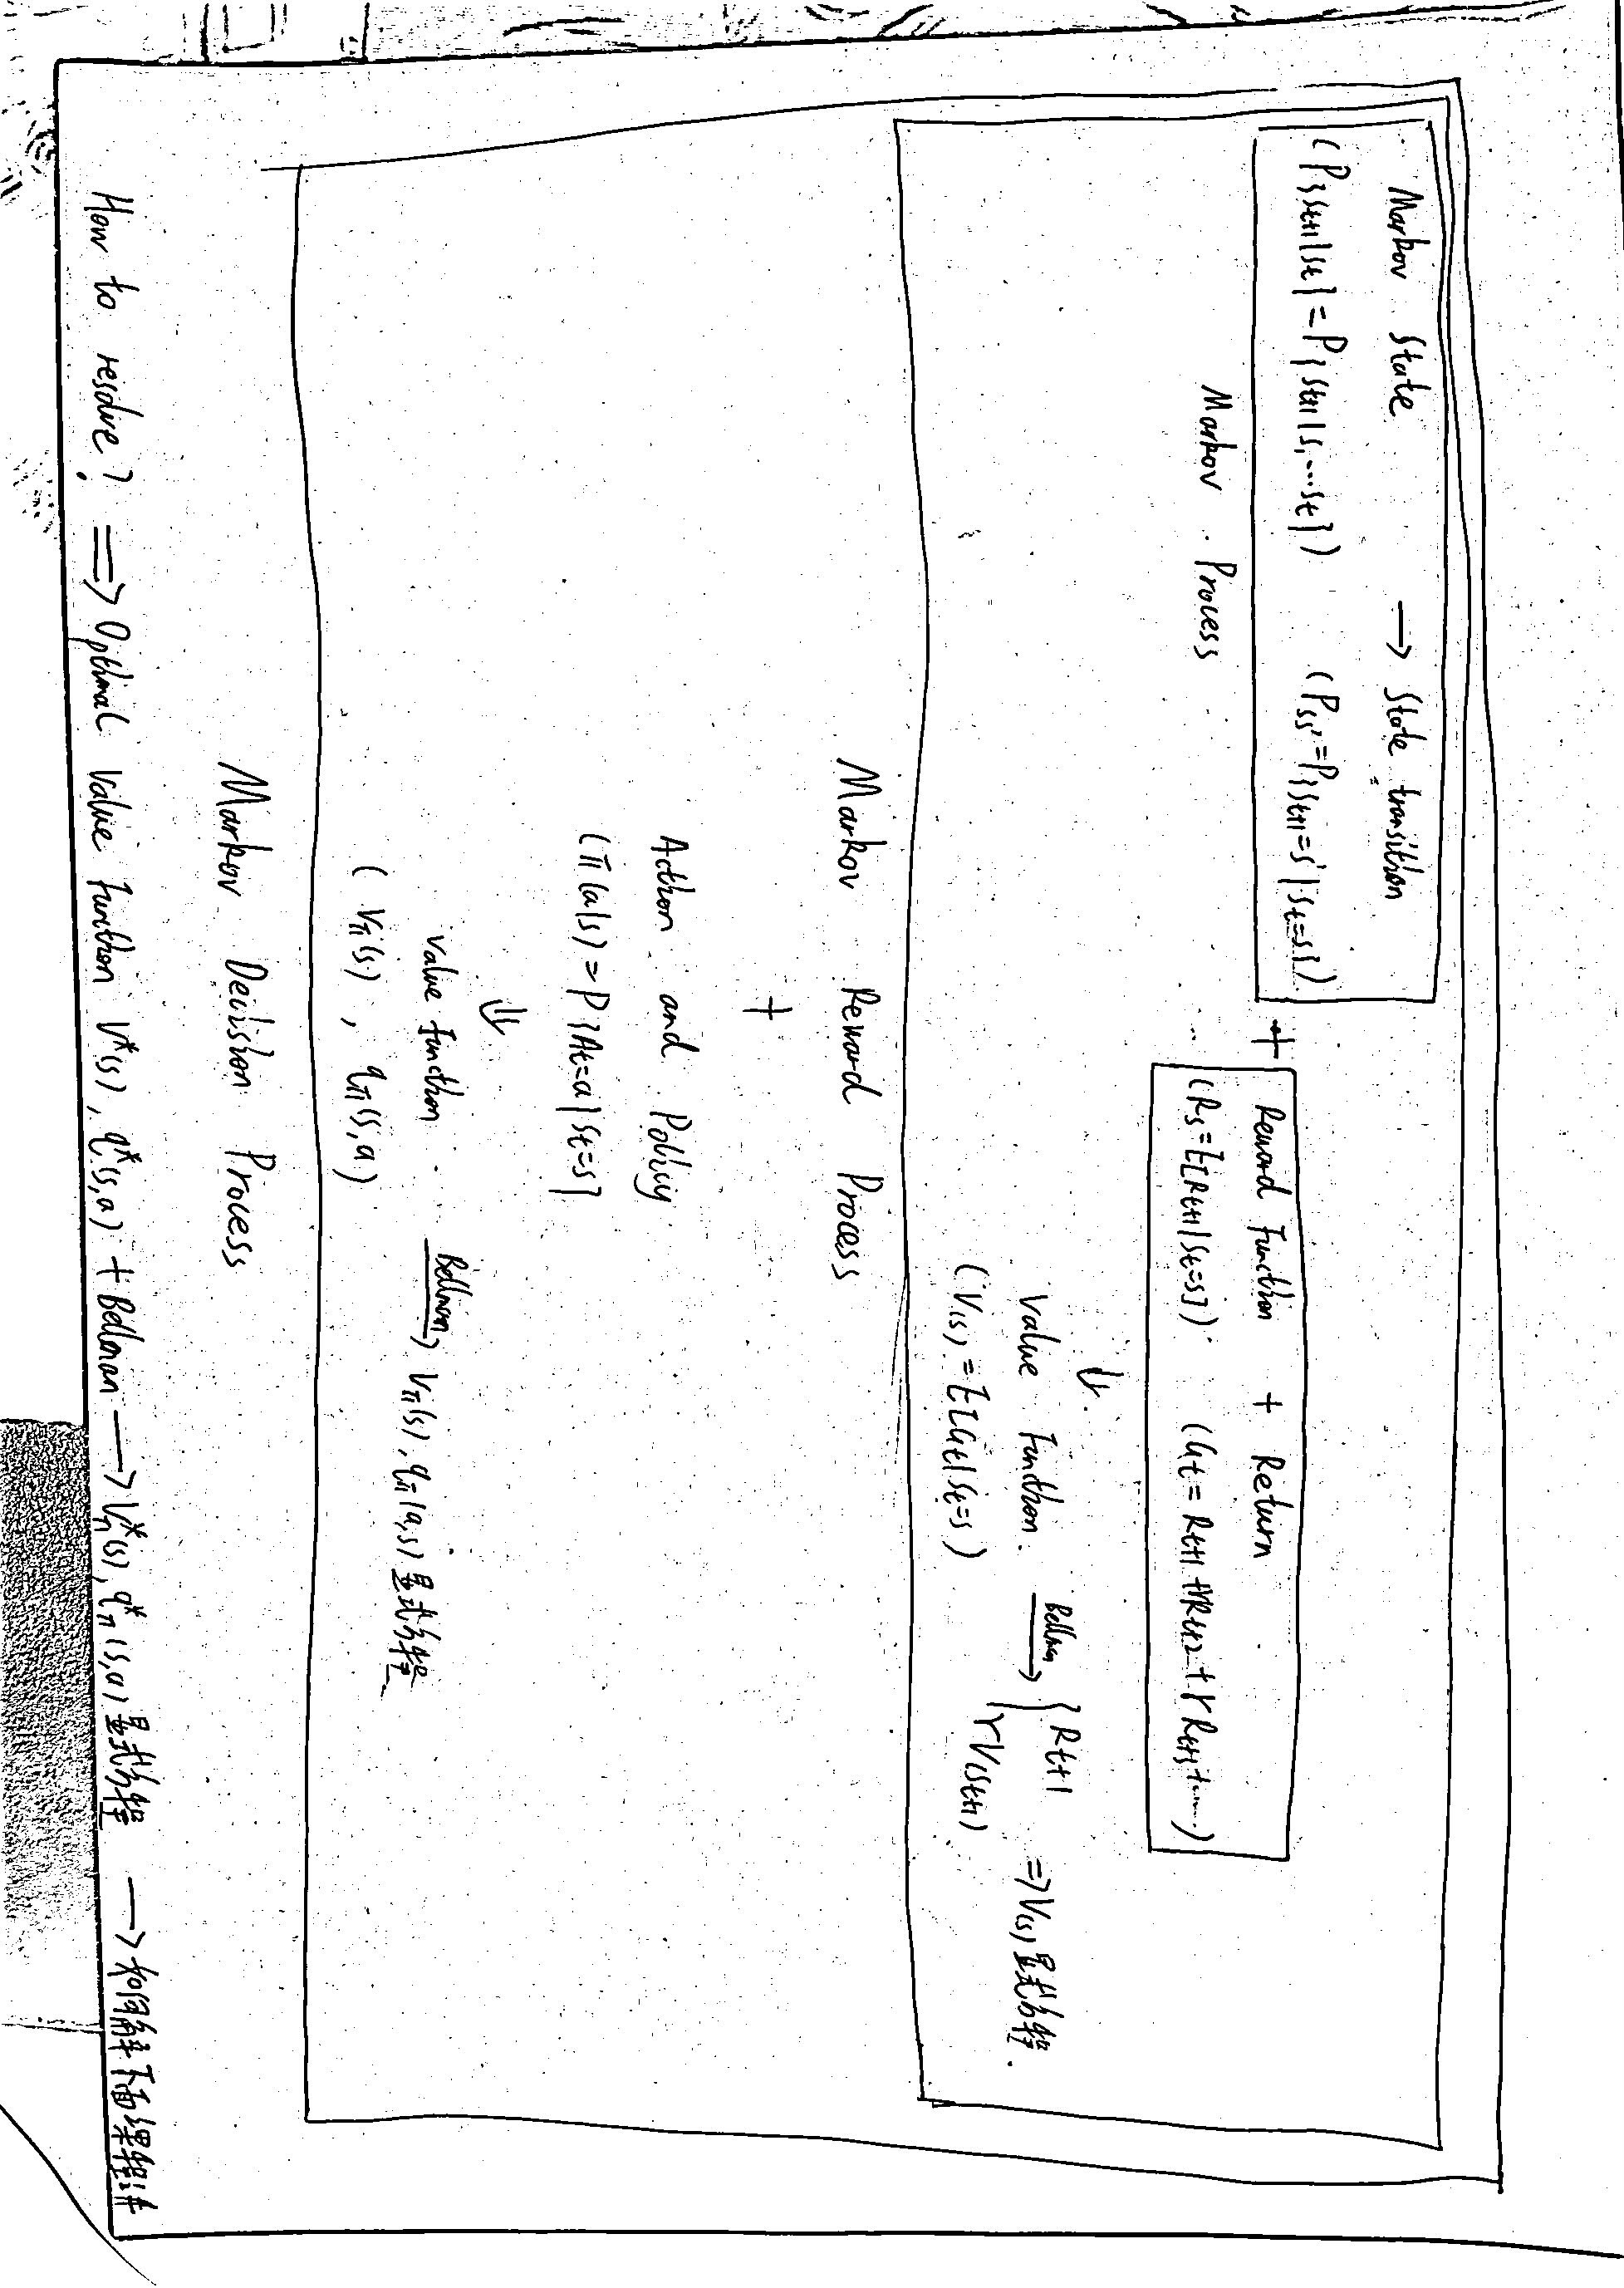 Markov State → State transition
(P{St+1|St} = P{St+1|S1...St}) (Pss' = P{St+1=s'|St=s})
+ Reward Function + Return
Markov Process
(Rs = E[Rt+1|St=s]) (Gt = Rt+1 + γRt+2 + γRt+3 + ......)
⇓
Value Function Bellman → { Rt+1 ⇒ V(s) 显式方程
γV(St+1)
(V(s) = E[Gt|St=s)
Markov Reward Process
+
Action and Policy
(π(a|s) = P{At=a|St=s]
⇓
Value Function Bellman → Vπ(s), qπ(a,s) 显式方程
(Vπ(s), qπ(s,a))
Markov Decision Process
How to resolve? ⇒ Optimal Value Function V*(s), q*(s,a) + Bellman → Vπ*(s), qπ*(s,a) 显式方程 → 如何解下面课程讲